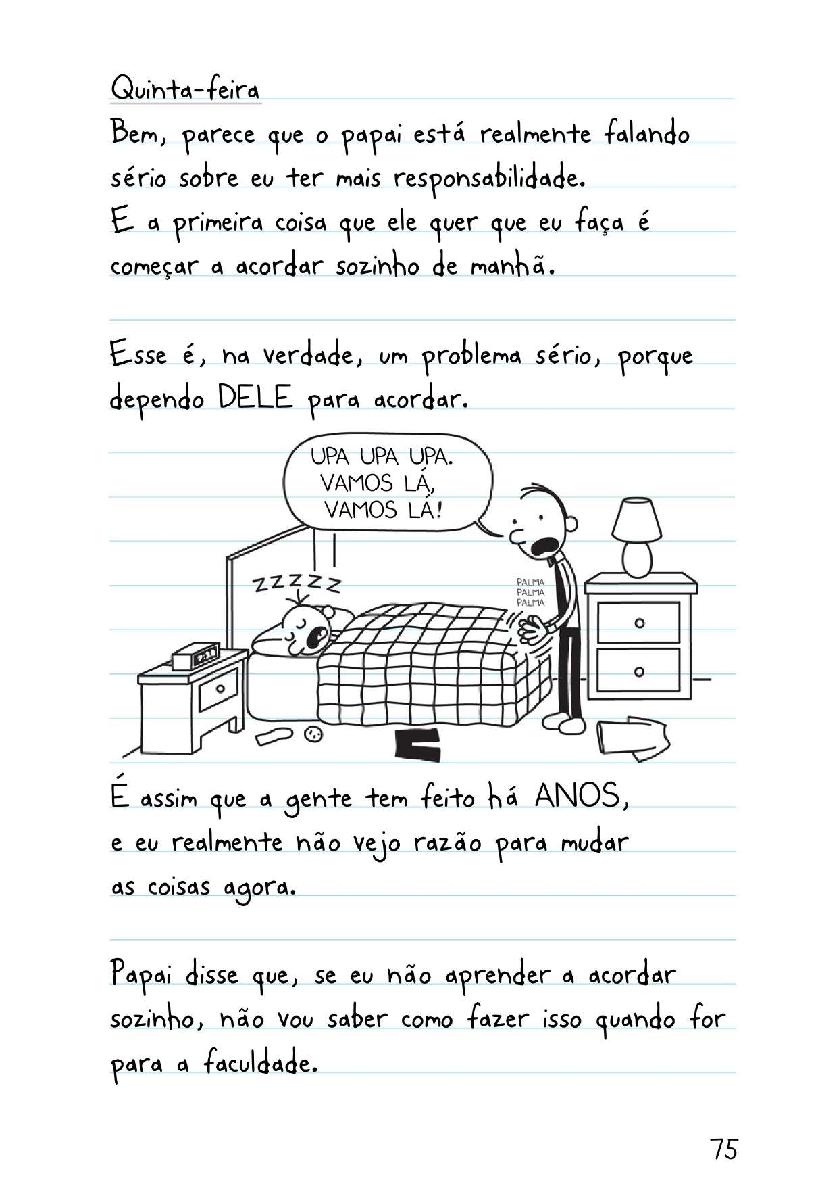 Quinta-feira
Bem, parece que o papai está realmente falando
sério sobre eu ter mais responsabilidade.
E a primeira coisa que ele quer que eu faça é
começar a acordar sozinho de manhã.
Esse é, na verdade, um problema sério, porque
dependo DELE para acordar.
UPA UPA UPA.
VAMOS LÁ,
VAMOS LÁ!
ZZZZZ
PALMA
PALMA
PALMA
É assim que a gente tem feito há ANOS,
e eu realmente não vejo razão para mudar
as coisas agora.
Papai disse que, se eu não aprender a acordar
sozinho, não vou saber como fazer isso quando for
para a faculdade.
75